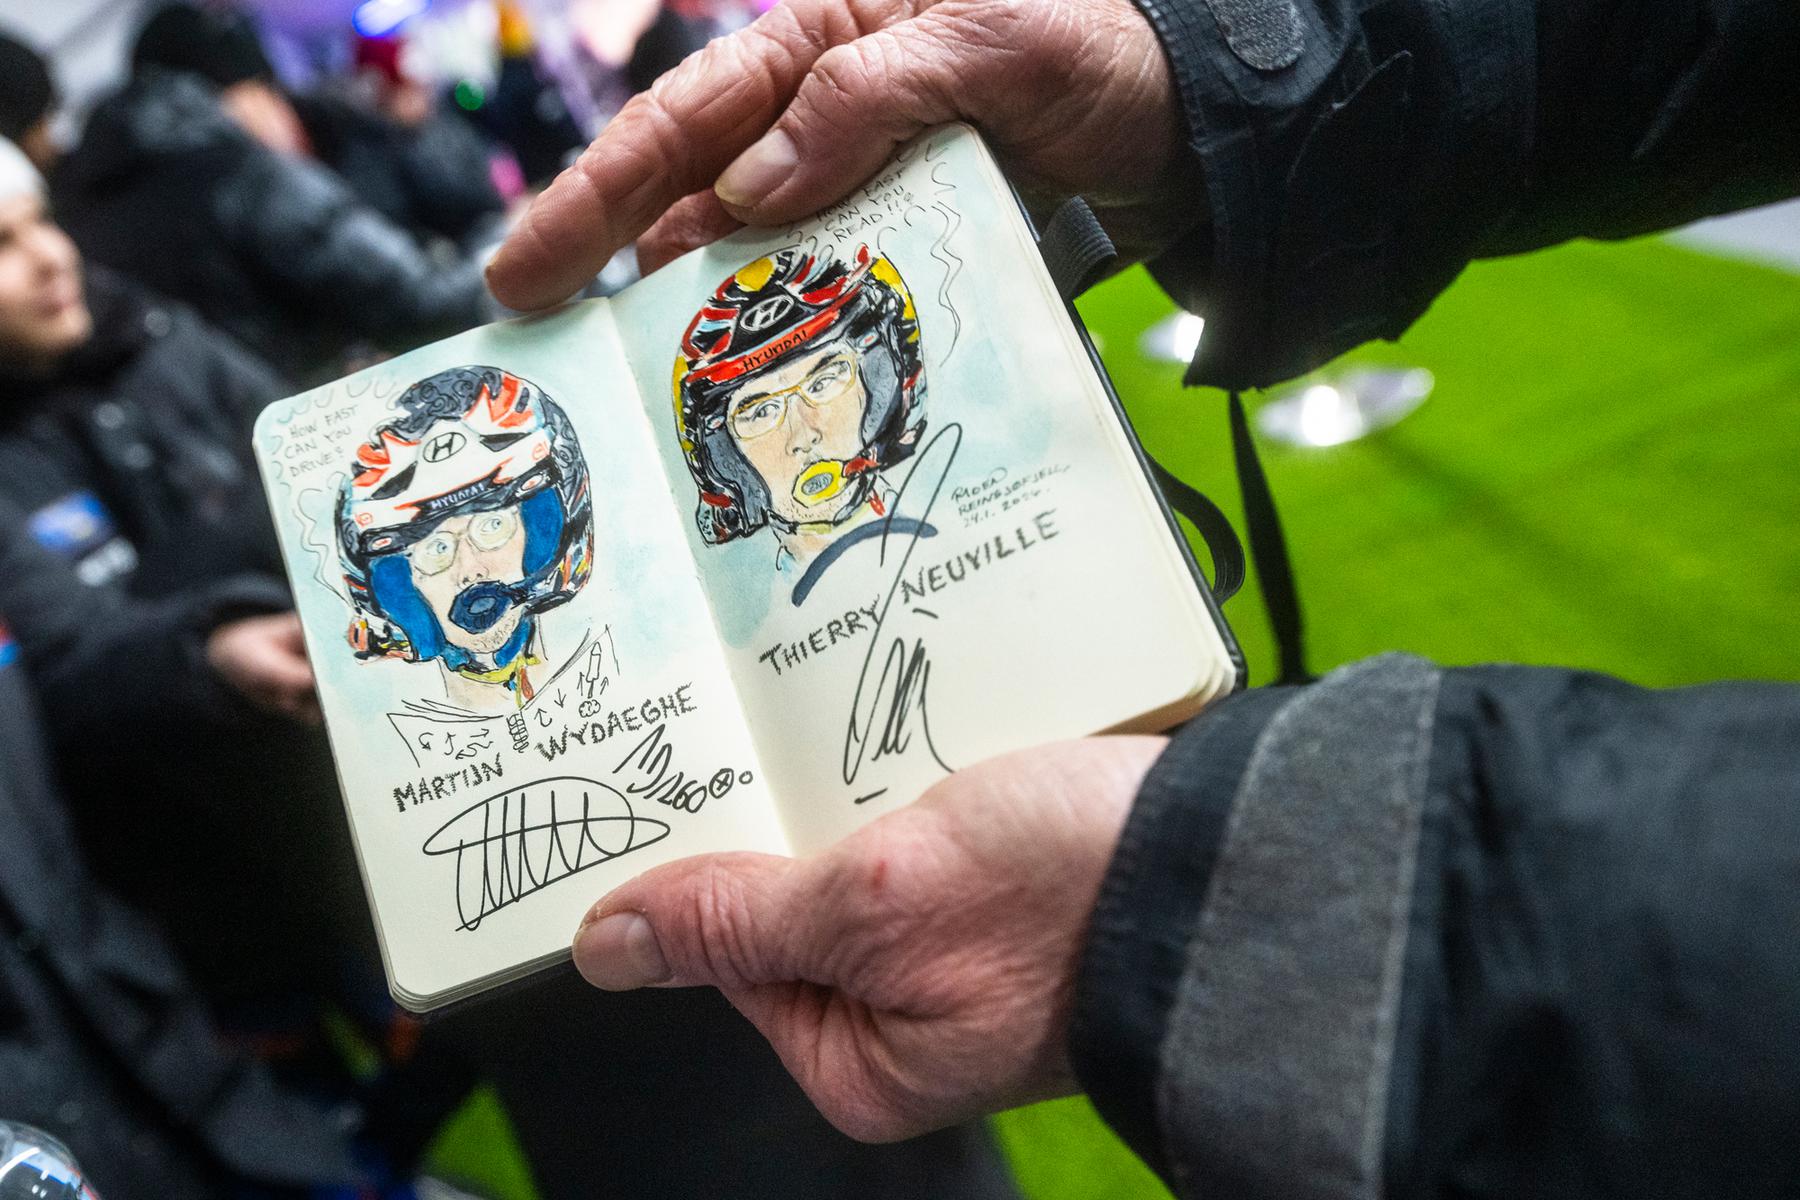 HOW FAST
CAN YOU
DRIVE?
H
HYUNDAI
MARTIJN WYDAEGHE
FAST
CAN YOU
READ!!?
H
HYUNDAI
REINGSOFJELL,
24.1. 2024.
THIERRY NEUVILLE